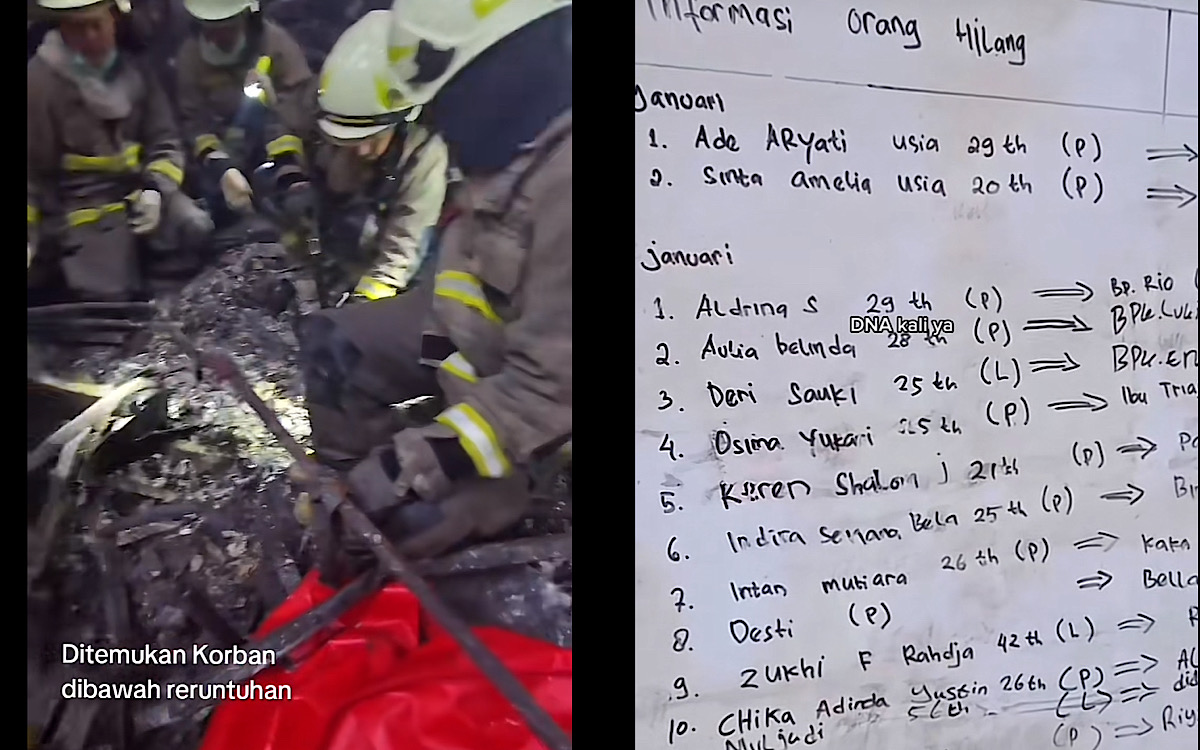 Ditemukan Korban
dibawah reruntuhan
Informasi Orang Hilang
Januari
1. Ade ARyati usia 29 th (P)
2. Sinta amelia usia 20 th (P)
januari
1. Aldrina S 29 th (P) Bp. Rio
DNA kali ya
2. Aulia belinda 28 th (P)
3. Deri Sauki 25 th (L)
4. Osima Yukari 25 th (P) Ibu Tria
5. Karen Shalom J 21 th (P)
6. Indira Bela 25 th (P)
7. Intan mutiara 26 th (P) kaka
8. Desti (P) Bella
9. Zukhi F Rahdja 42 th (L)
10. CHiKa Adinda 26 th (P)
Mulyadi (L)
(P) Riy